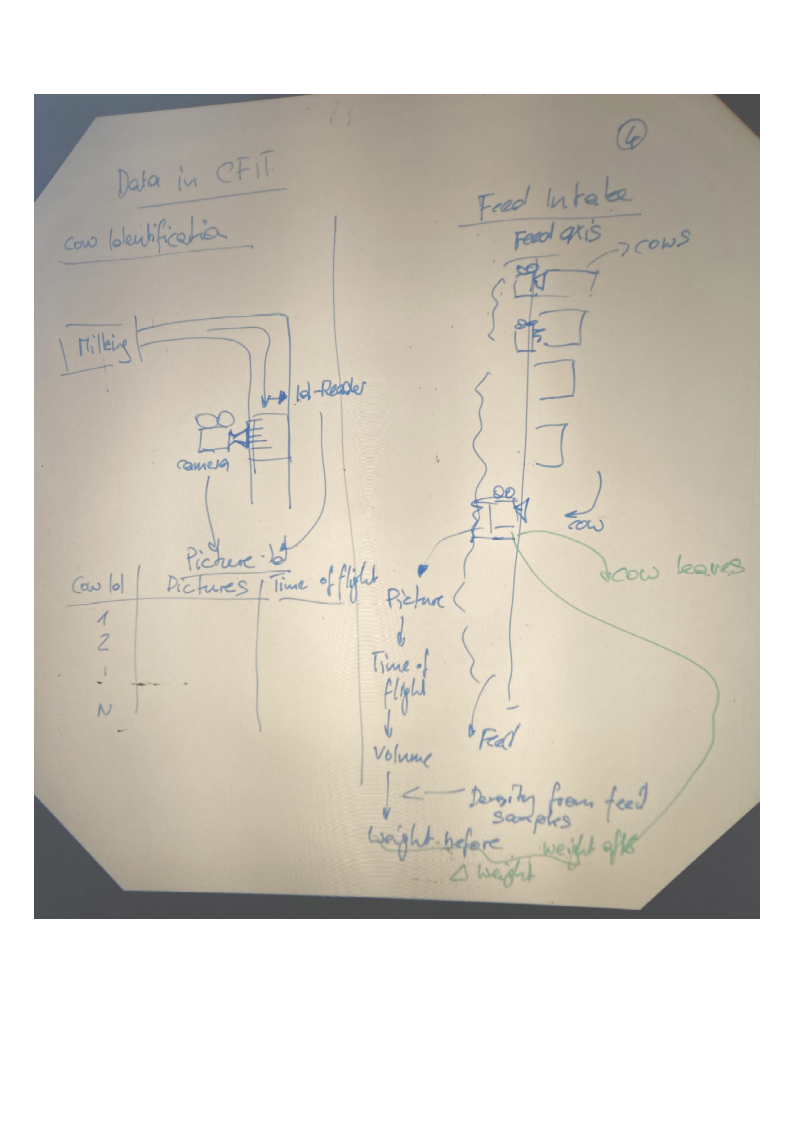 6
Data in CFIT
Cow Identification
Milking
Id-Reader
camera
Picture-Id
Cow Id
Pictures
Time of flight
1
2
N
Feed Intake
Feed axis
cows
cow
cow leaves
Picture
Time of
flight
Volume
Feed
Density from feed
samples
Weight before
weight after
Δ weight